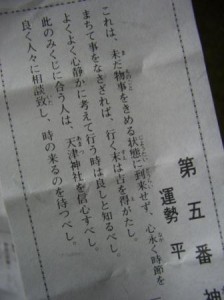 第五番
運勢 平
これは、未だ物事をきめる状態に到来せず、心永く時節を
まちて事をなさざれば、行く末は吉を得がたし。
よくよく心静かに考えて行う時は良しと知るべし。
此のみくじに合う人は、天津神社を信心すべし。
良く人々に相談致し、時の来るのを待つべし。